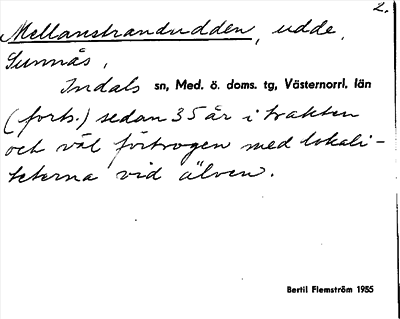 2.
Mellanstrandudden, udde,
Sunnås,
Indals sn, Med. ö. doms. tg, Västernorrl. län
(forts.) sedan 35 år i trakten
och väl förtrogen med lokali-
teterna vid älven.
Bertil Flemström 1955